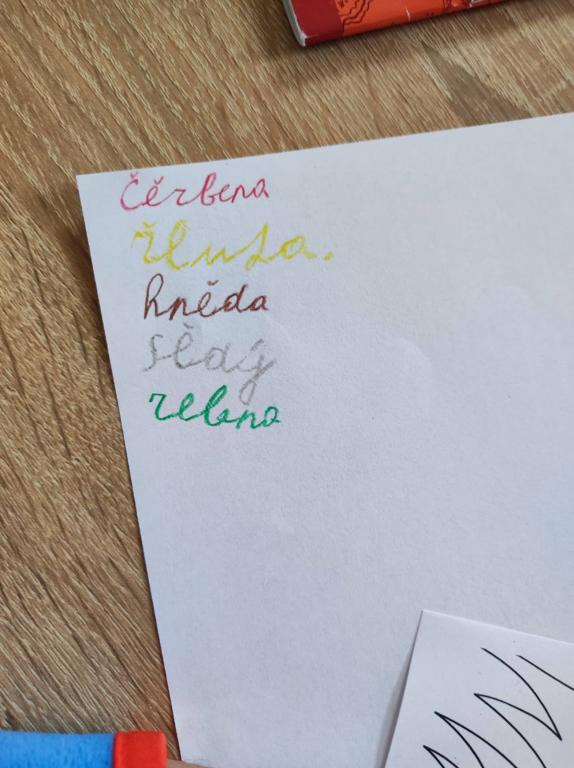 Čěrbena
žluta.
hněda
Sědý
zelena